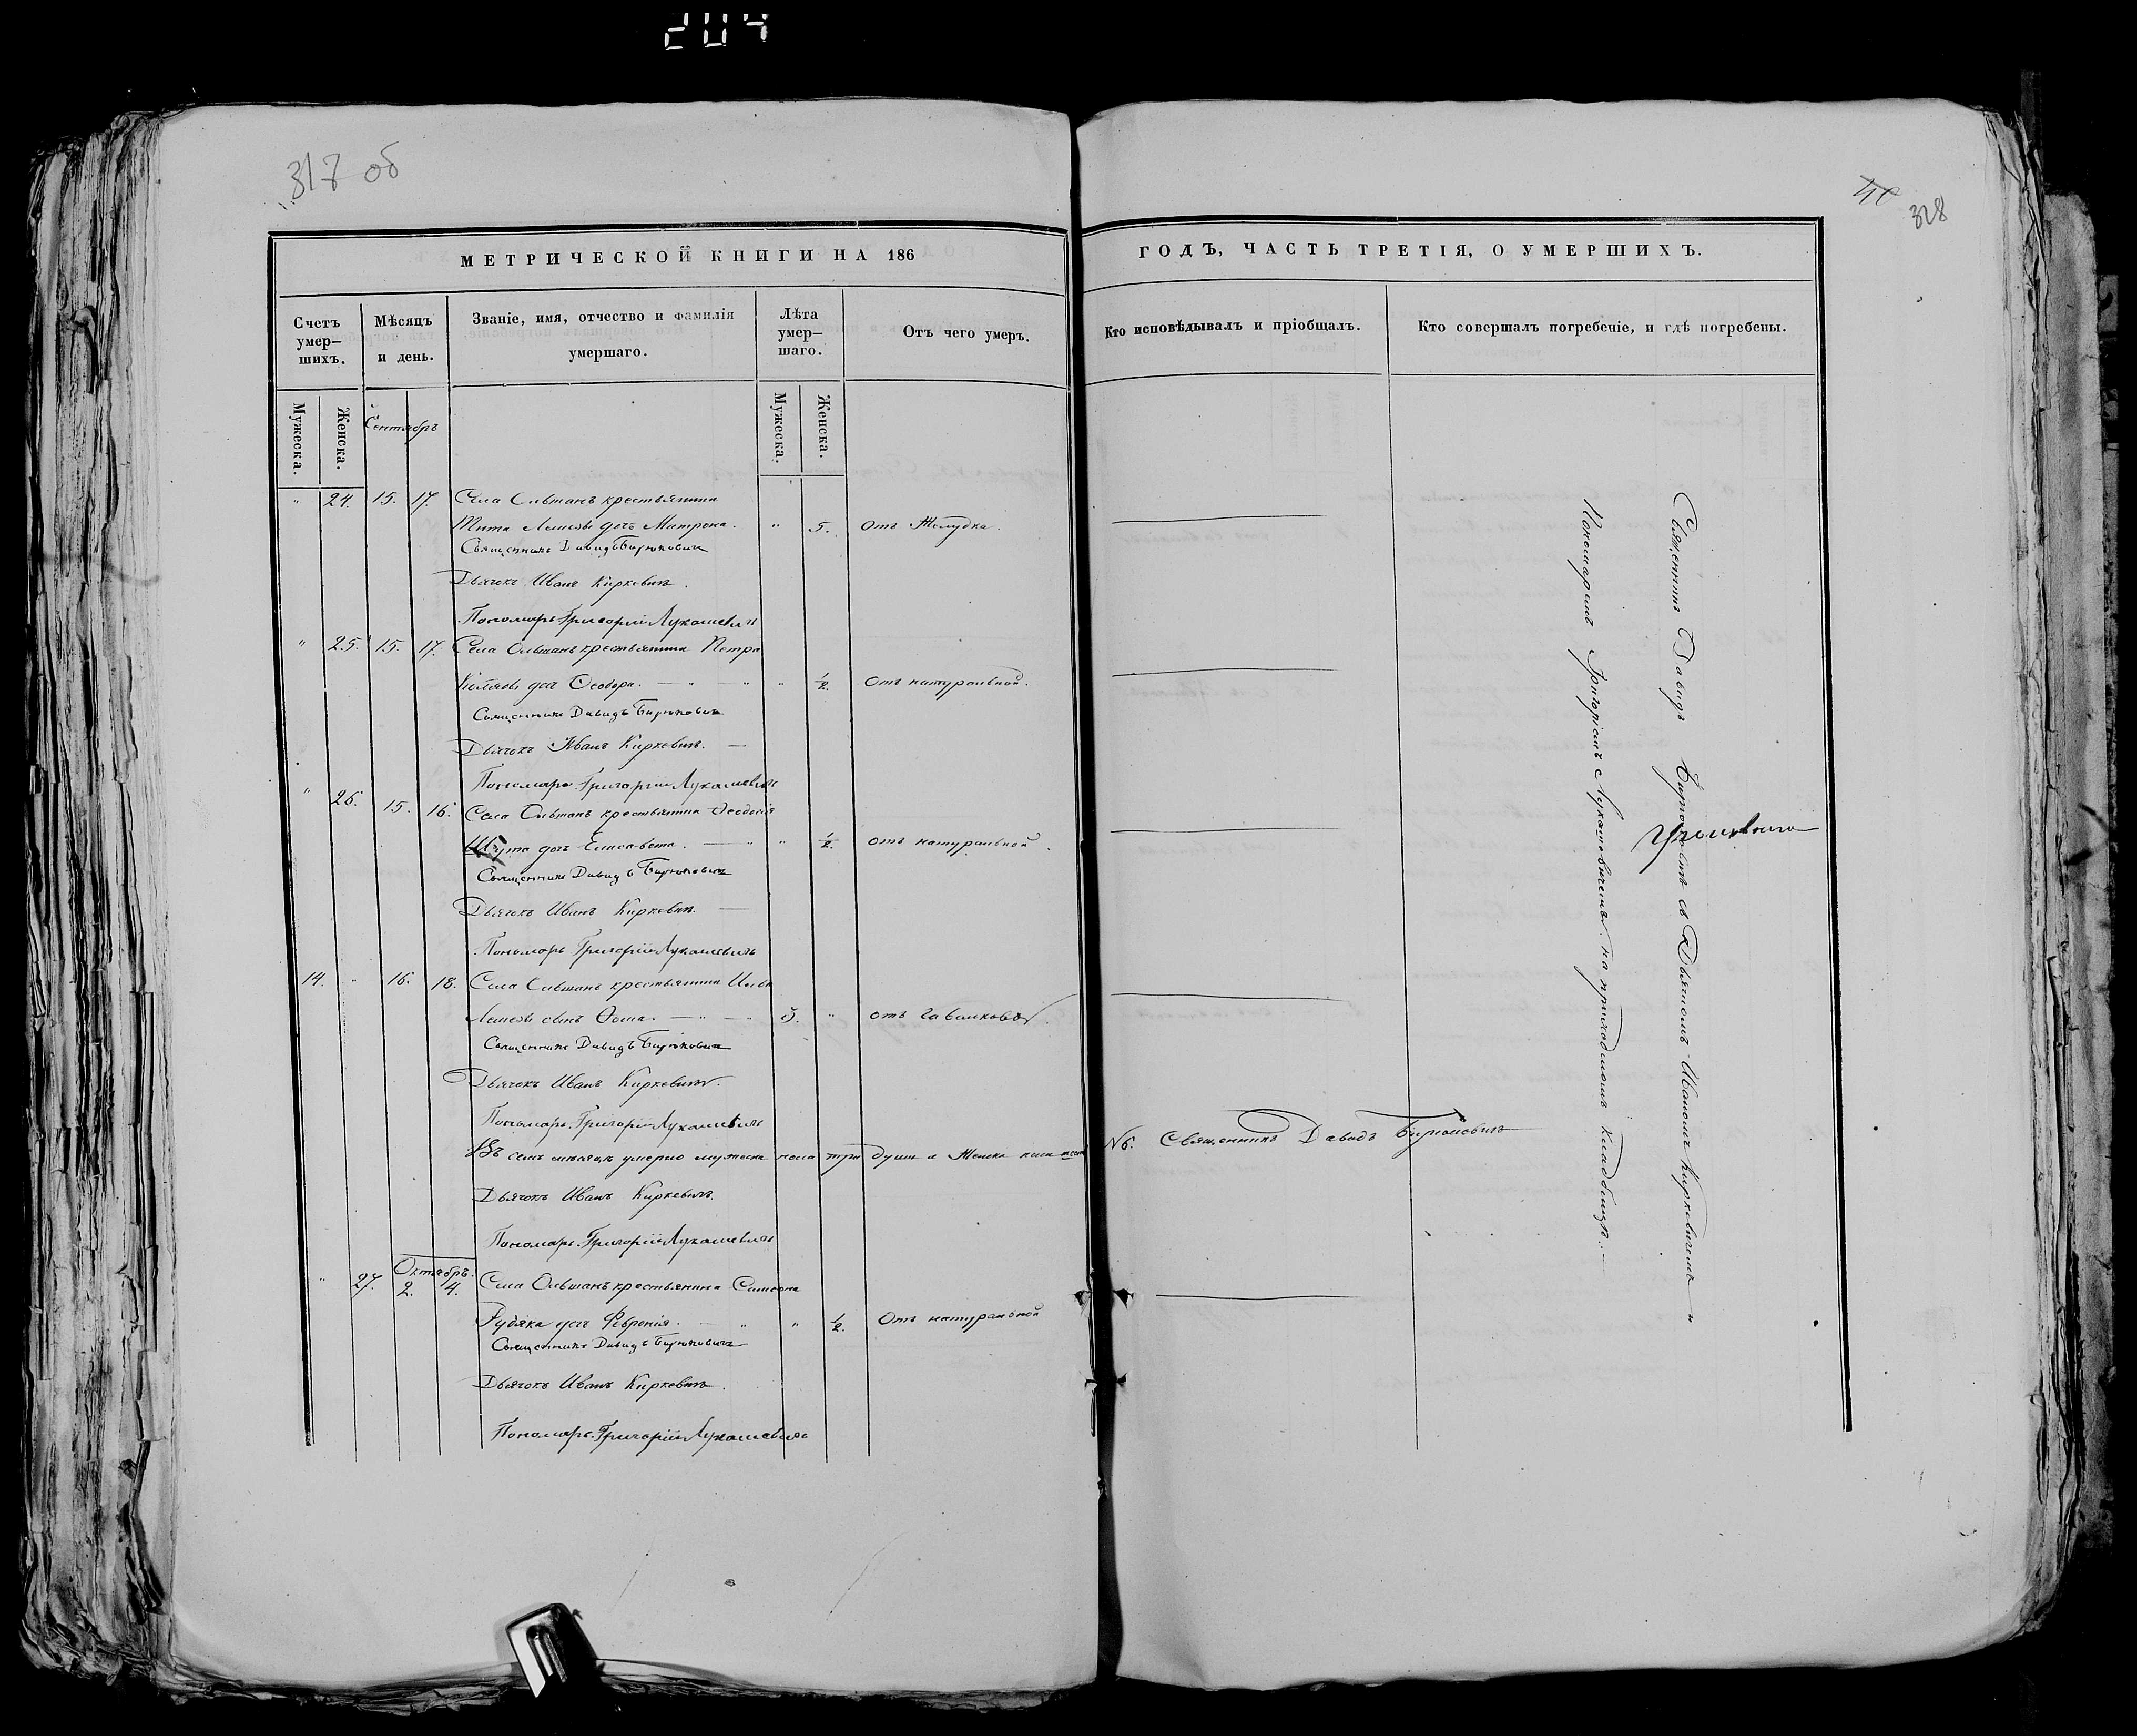 204
317 об
40
328
МЕТРИЧЕСКОЙ КНИГИ НА 186
ГОДЪ, ЧАСТЬ ТРЕТІЯ, О УМЕРШИХЪ.
Счетъ умер-шихъ.
Мѣсяцъ и день.
Званіе, имя, отчество и фамилія умершаго.
Лѣта умер-шаго.
Отъ чего умеръ.
Кто исповѣдывалъ и пріобщалъ.
Кто совершалъ погребеніе, и гдѣ погребены.
Мужеска. Женска.
Мужеска. Женска.
Сентябрь
" 24. 15. 17. Села Ольшанъ крестьянина
Тита дочь Матрона. " 5. Отъ Желудка.
Священникъ Давидъ Бирюковичъ
Дьячокъ Иванъ Киркевичъ.
Пономарь Григорій Лукашевичъ
" 25. 15. 17. Села Ольшанъ крестьянина Петра
дочь Ѳеодора. " 1/2. Отъ натуральной.
Священникъ Давидъ Бирюковичъ
Дьячокъ Иванъ Киркевичъ.
Пономарь Григорій Лукашевичъ
" 26. 15. 16. Села Ольшанъ крестьянина Ѳеодосія
Шута дочь Елисавета. " 1/2. отъ натуральной.
Священникъ Давидъ Бирюковичъ
Дьячокъ Иванъ Киркевичъ.
Пономарь Григорій Лукашевичъ
14. " 16. 18. Села Ольшанъ крестьянина
сынъ Ѳома. 3. " отъ
Священникъ Давидъ Бирюковичъ
Дьячокъ Иванъ Киркевичъ.
Пономарь Григорій Лукашевичъ
Въ семъ мѣсяцѣ умерло мужеска пола три души а Женска пола
№6. Священникъ Давидъ Бирюковичъ
Дьячокъ Иванъ Киркевичъ.
Пономарь Григорій Лукашевичъ
Октябрь.
" 27. 2. 4. Села Ольшанъ крестьянина Симеона
Рудяка дочь Февронія. " 1/2. Отъ натуральной
Священникъ Давидъ Бирюковичъ
Дьячокъ Иванъ Киркевичъ.
Пономарь Григорій Лукашевичъ
Священникъ Давидъ Бирюковичъ съ Дьячкомъ Иваномъ Киркевичемъ и
Пономаремъ Григоріемъ Лукашевичемъ на приходскомъ кладбищѣ.